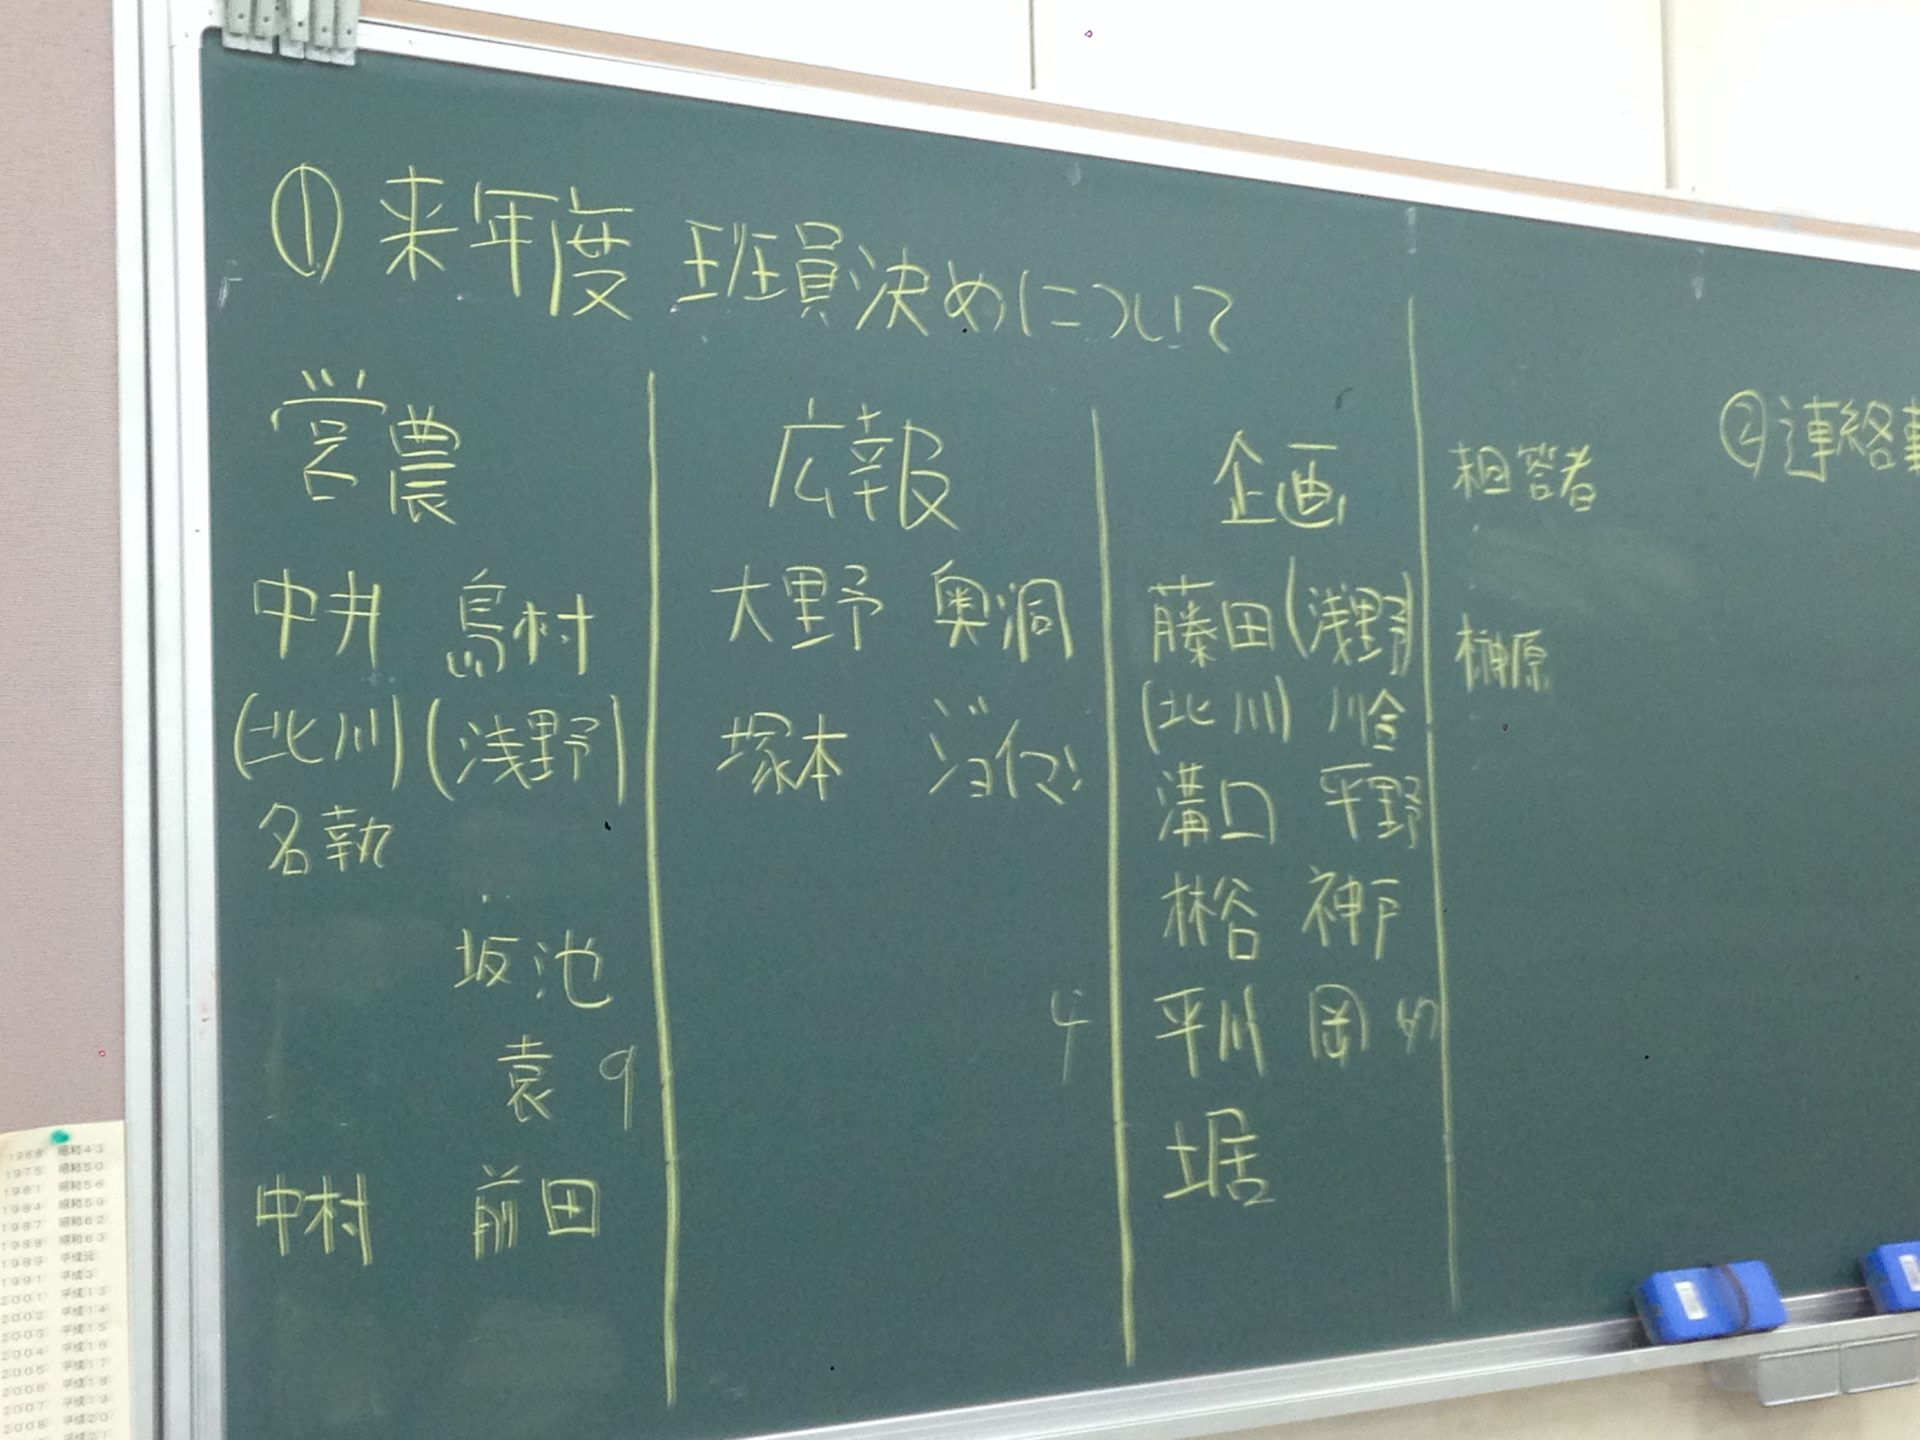 ①来年度 班員決めについて
営農
中井 島村
(北川) (浅野)
名執
坂池
袁 9
中村 前田
広報
大野 奥洞
塚本 ジョイマン
4
企画
藤田 (浅野)
(北川) 川合
溝口 平野
彬谷 神戸
平川 岡
堀
担答者
榊原
②連絡事
1968 昭和43
1975 昭和50
1981 昭和56
1984 昭和59
1987 昭和62
1988 昭和63
1989 平成元
1991 平成3
2001 平成13
2002 平成14
2003 平成15
2004 平成16
2005 平成17
2006 平成18
2007 平成19
2008 平成20